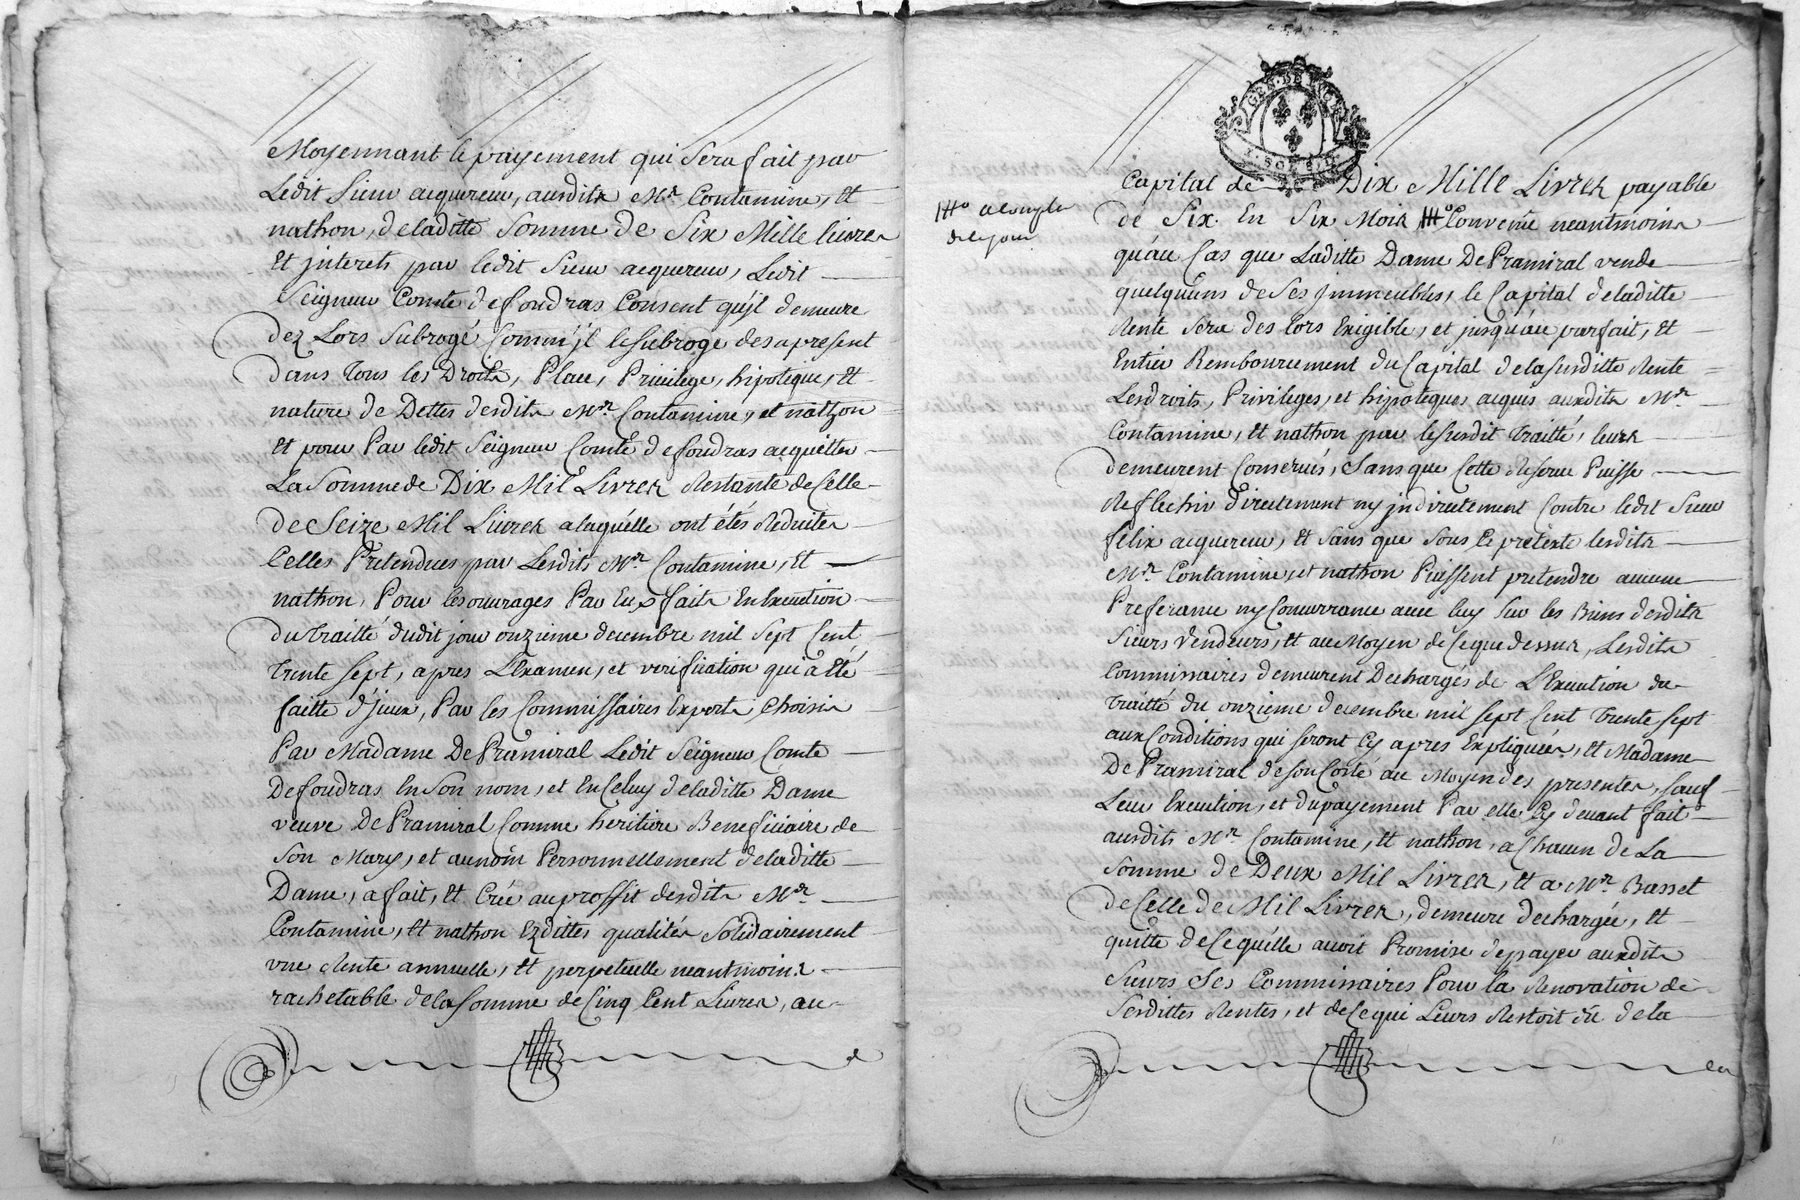 Moyennant le payement qui sera fait par
Ledit Sieur acquereur, ausdits Mrs. Contamine, Et
nathon, deladitte Somme de Six Mille livres
Et jnterets par ledit Sieur acquereur, Ledit
Seigneur Comte defoudras Consent qu'jl demeure
dez Lors Subrogé Comm'jl lesubroge desapresent
dans Tous les Droits, Place, Privilege, hipoteque, Et
nature de Dettes desdits Mrs. Contamine, et nathon
Et pour Par ledit Seigneur Comte defoudras acquitter
La Somme de Dix Mil Livres Restante de Celle
de Seize Mil Livres alaquélle ont étés Reduites
Celles Pretendues par Lesdits Mrs. Contamine, Et
nathon, Pour lesouvrages Par Eux faits En Execution
du traitté dudit jour onzieme decembre mil Sept Cent
trente Sept, apres L'Examen, et verification qui à Eté
faitte d'jceux, Par les Commissaires Experts Choisis
Par Madame De Pramiral Ledit Seigneur Comte
Defoudras En Son nom, et En Celuy deladitte Dame
veuve De Pramiral Comme heritiere Beneficiaire de
Son Mary, et aunom Personnellement deladitte
Dame, a fait, Et Créé auproffit desdits Mrs.
Contamine, Et nathon Ezdittes qualités Solidairement
vne Rente annuelle, Et perpetuelle neantmoins
rachetable delasomme de Cinq Cent Livres, au
GEN. DE
Capital de Dix Mille Livres payable
de Six En Six Mois Convenu neantmoins
a Compter
de ce jour
qu'au Cas que Laditte Dame De Pramiral vende
quelqu'uns de Ses jmmeubles, le Capital deladitte
Rente Sera des lors Exigible, et jusqu'au parfait, Et
Entier Remboursement du Capital de lasusditte Rente
Lesdroits, Privileges, et hipoteques acquis ausdits Mrs.
Contamine, Et nathon par lesusdit Traitté, leurs
demeurent Conservés, Sans que Cette Reserve Puisse
Reflechir directement ny jndirectement Contre ledit Sieur
felix acquereur, Et Sans que Sous Ce prétexte lesdits
Mrs. Contamine, et nathon Puissent pretendre aucune
Preferance ny Concurrance avec luy Sur les Biens desdits
Sieurs Vendeurs, Et au Moyen de Ceque dessus, Lesdits
Commissaires demeurent Dechargés de L'Execution du
Traitté du onzieme decembre mil Sept Cent Trente Sept
aux Conditions qui Seront Cy apres Expliquées, Et Madame
De Pramiral de Son Coté au Moyen des presentes, Sauf
Leur Execution, et dupayement Par elle Cy devant fait
ausdits Mrs. Contamine, Et nathon, a Chacun de La
Somme de Deux Mil Livres, Et a Mr. Basset
de Celle de Mil Livres, demeure dechargée, Et
quitte de Ce qu'élle avoit Promise depayer ausdits
Sieurs Ses Commissaires Pour la Renovation de
Sesdittes Rentes, et de Cequi Leurs Restoit dû dela
la